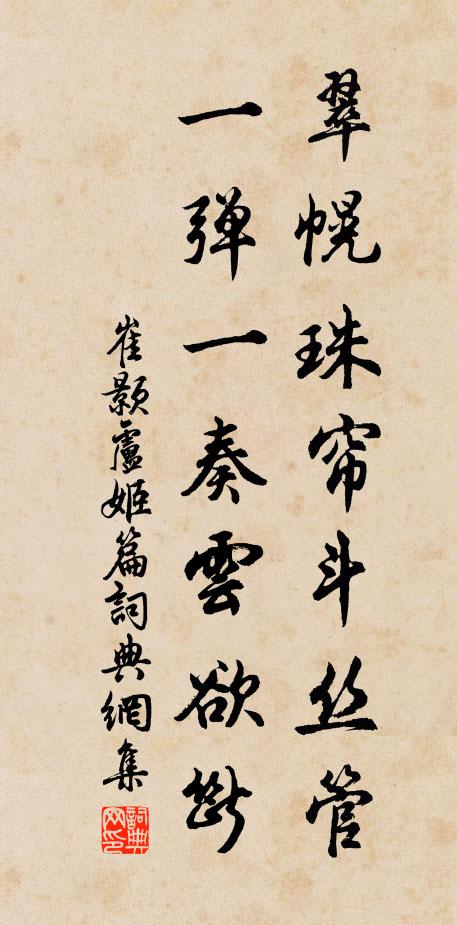 翠幌珠帘斗丝管
一弹一奏雲欲断
崔颢盧姬篇詞典網集
詞典网印